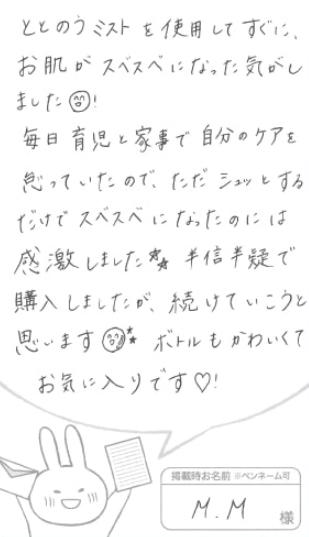 ととのうミストを使用してすぐに、
お肌がスベスベになった気がし
ました!
毎日育児と家事で自分のケアを
怠っていたので、ただシュッとする
だけでスベスベになったのには
感激しました 半信半疑で
購入しましたが、続けていこうと
思います ボトルもかわいくて
お気に入りです♡!
掲載時お名前 ※ペンネーム可
M.M 様